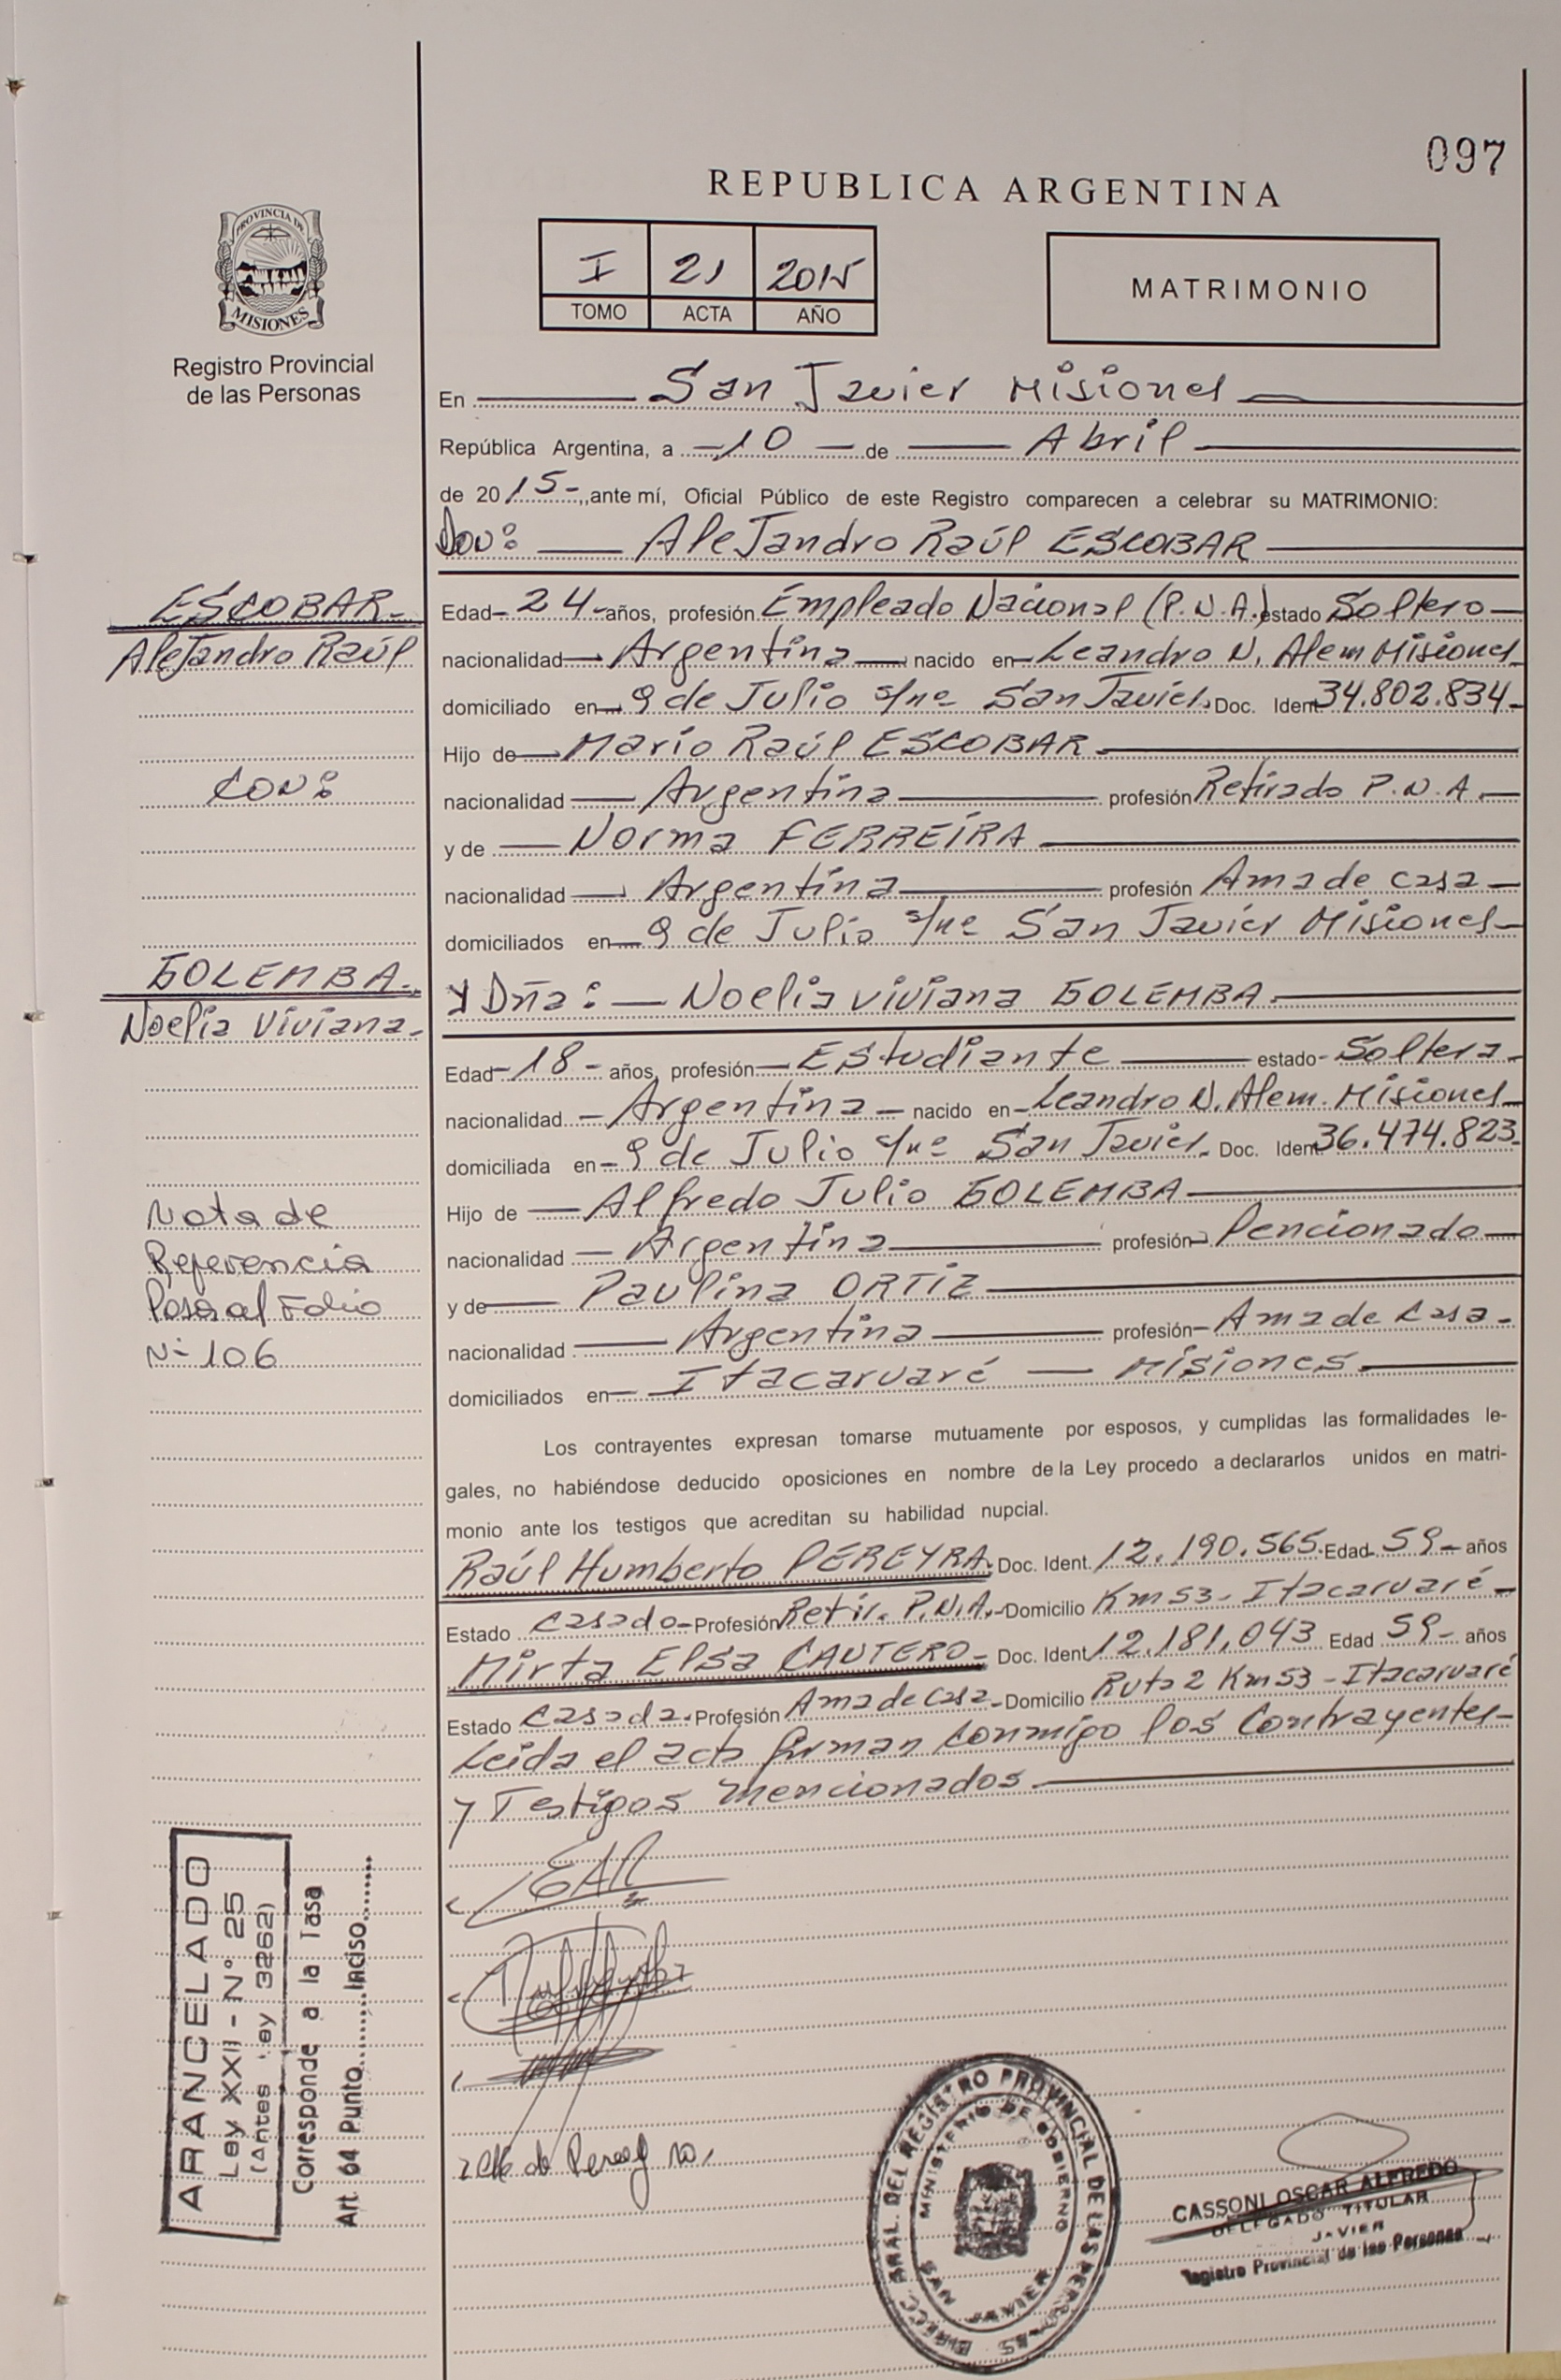 097
REPUBLICA ARGENTINA
PROVINCIA DE
MISIONES
Registro Provincial
de las Personas
I 21 2015
TOMO ACTA AÑO
MATRIMONIO
En San Javier Misiones
República Argentina, a 10 de Abril
de 2015-, ante mí, Oficial Público de este Registro comparecen a celebrar su MATRIMONIO:
Don: AleJandro Raúl ESCOBAR
ESCOBAR-
AleJandro Raúl
Edad-24-años, profesión Empleado Nacional (P.N.A. estado Soltero-
nacionalidad Argentina nacido en Leandro N. Alem Misiones
domiciliado en 9 de Julio s/nº San Javier. Doc. Ident. 34.802.834-
Hijo de Mario Raúl ESCOBAR.
CON:
nacionalidad Argentina profesión Retirado P.N.A.
y de Norma FERREIRA
nacionalidad Argentina profesión Ama de casa-
domiciliados en 9 de Julio s/nº San Javier Misiones-
GOLEMBA.
Noelia Viviana.
Y Dña: Noelia Viviana GOLEMBA.
Edad-18-años, profesión Estudiante estado-Soltera.
nacionalidad Argentina nacido en Leandro N. Alem. Misiones
domiciliada en-9 de Julio s/nº San Javier. Doc. Ident. 36.474.823-
Hijo de Alfredo Julio GOLEMBA
nacionalidad Argentina profesión Pencionado
y de Paulina ORTIZ
nacionalidad Argentina profesión-Ama de Casa-
domiciliados en Itacaruaré - Misiones.
Nota de
Referencia
Pasa al Folio
Nº 106
Los contrayentes expresan tomarse mutuamente por esposos, y cumplidas las formalidades le-
gales, no habiéndose deducido oposiciones en nombre de la Ley procedo a declararlos unidos en matri-
monio ante los testigos que acreditan su habilidad nupcial.
Raúl Humberto PEREYRA. Doc. Ident. 12.190.565. Edad 59- años
Estado Casado-Profesión Retir. P.N.A.-Domicilio Km 53- Itacaruaré-
Mirta Elsa CAUTERO- Doc. Ident 12.181.043 Edad 59- años
Estado Casada. Profesión Ama de casa-Domicilio Ruta 2 Km 53 - Itacaruaré
Leida el acta firman conmigo los Contrayentes-
y Testigos mencionados
EAR
ARANCELADO
Ley XXII - Nº 25
(Antes Ley 3262)
Corresponde a la Tasa
Art. 64 Punto........Inciso........
DEL REGISTRO PROVINCIAL DE LAS PERSONAS
MINISTERIO DE GOBIERNO
SAN JAVIER
CASSONI OSCAR ALFREDO
DELEGADO TITULAR
JAVIER
Registro Provincial de las Personas